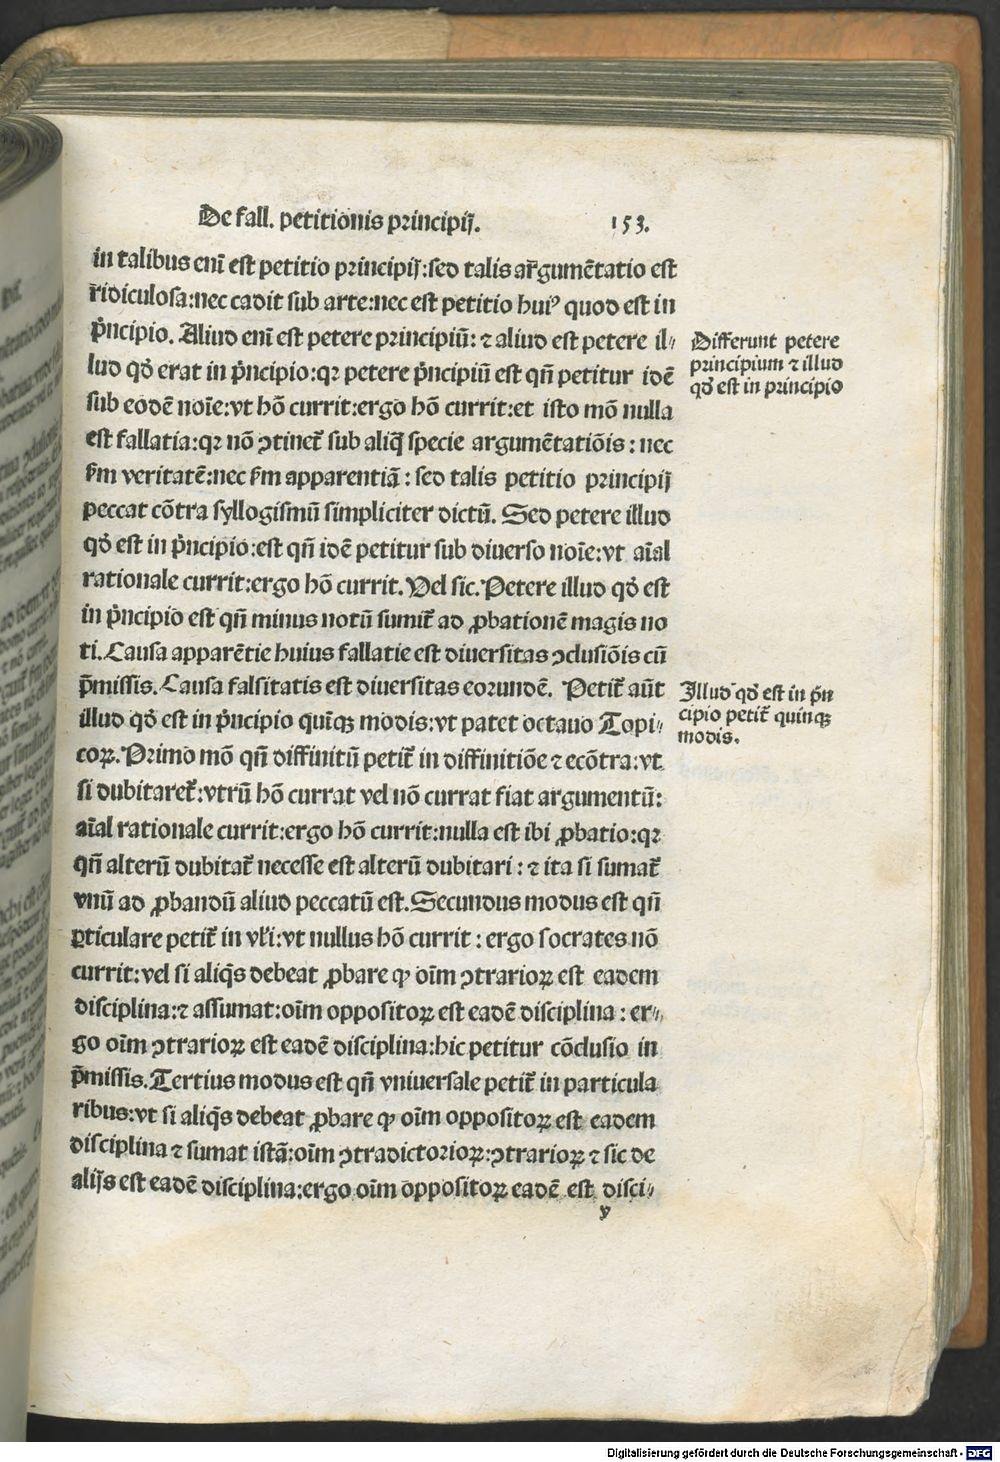 De fall. petitionis principij. 153.
in talibus enī est petitio principij:sed talis argumētatio est
ridiculosa:nec cadit sub arte:nec est petitio huiꝰ quod est in
p̄ncipio. Aliud enī est petere principiū: ⁊ aliud est petere il⸗
lud qd̓ erat in p̄ncipio:qꝛ petere p̄ncipiū est qn̄ petitur idē
sub eodē noīe:vt hō currit:ergo hō currit:et isto mō nulla
est fallatia:qꝛ nō ꝯtinet᷑ sub aliq̄ specie argumētatiōis: nec
ẜm veritatē:nec ẜm apparentiā: sed talis petitio principij
peccat cōtra syllogismū simpliciter dictū. Sed petere illud
qd̓ est in p̄ncipio:est qn̄ idē petitur sub diuerso noīe:vt aīal
rationale currit:ergo hō currit. Vel sic. Petere illud qd̓ est
in p̄ncipio est qn̄ minus notū sumit᷑ ad ꝓbationē magis no
ti. Causa apparētie huius fallatie est diuersitas ꝯclusiōis cū
p̄missis. Causa falsitatis est diuersitas eorundē. Petit᷑ aūt
illud qd̓ est in p̄ncipio quīqꝫ modis: vt patet octauo Topi⸗
coꝝ. Primo mō qn̄ diffinitū petit᷑ in diffinitiōe ⁊ ecōtra:vt
si dubitaret᷑:vtrū hō currat vel nō currat fiat argumentū:
aīal rationale currit:ergo hō currit:nulla est ibi ꝓbatio:qꝛ
qn̄ alterū dubitat᷑ necesse est alterū dubitari: ⁊ ita si sumat᷑
vnū ad ꝓbandū aliud peccatū est. Secundus modus est qn̄
ꝑticulare petit᷑ in vl̓i:vt nullus hō currit: ergo socrates nō
currit:vel si aliq̄s debeat ꝓbare ꝙ oīm ꝯtrarioꝝ est eadem
disciplina:⁊ assumat:oīm oppositoꝝ est eadē disciplina: er⸗
go oīm ꝯtrarioꝝ est eadē disciplina:hic petitur cōclusio in
p̄missis. Tertius modus est qn̄ vniuersale petit᷑ in particula
ribus:vt si aliq̄s debeat ꝓbare ꝙ oīm oppositoꝝ est eadem
disciplina ⁊ sumat istā:oīm ꝯtradictorioꝝ:ꝯtrarioꝝ ⁊ sic de
alijs est eadē disciplina:ergo oīm oppositoꝝ eadē est disci⸗
y
Differunt petere
principium ⁊ illud
qd̓ est in principio
Illud qd̓ est in p̄n
cipio petit᷑ quinqꝫ
modis.
Digitalisierung gefördert durch die Deutsche Forschungsgemeinschaft - DFG